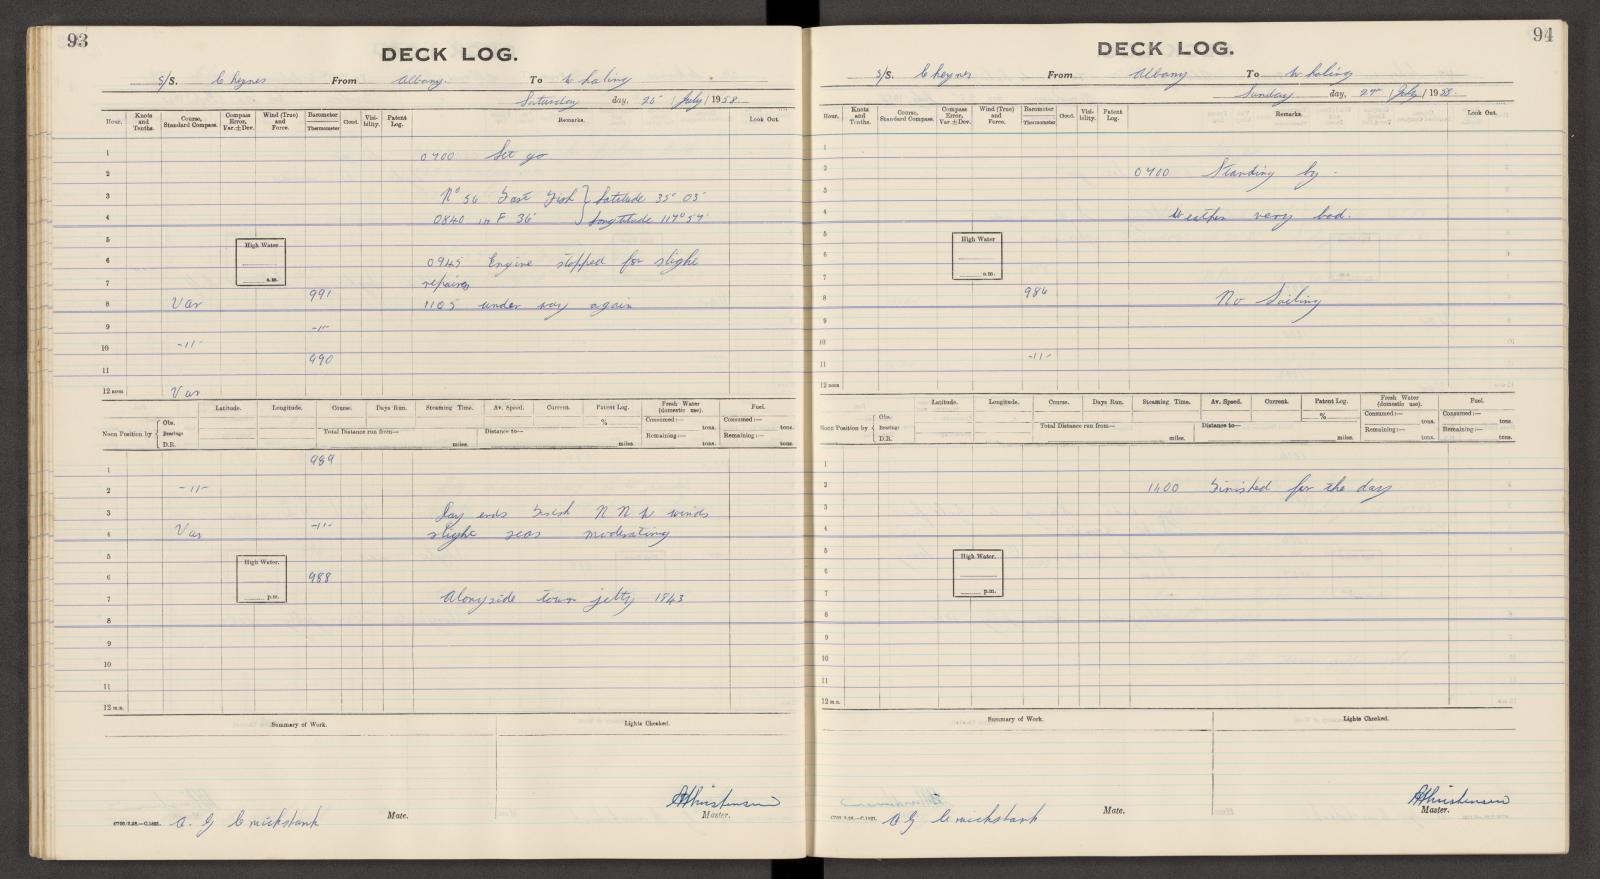 93
DECK LOG.
S/S. Cheynes From Albany. To Whaling
Saturday day, 26 / July / 1958.
Hour. Knots and Tenths. Course, Standard Compass. Compass Error, Var. ± Dev. Wind (True) and Force. Barometer Thermometer Cloud. Visibility. Patent Log. Remarks. Look Out.
1 0700 Set go
2
3 No 56 Fast Fish } Latitude 35° 05'
4 0840 in F 36' } Longtitude 117° 57'
5
High Water
6 0945 Engine stopped for slight
a.m.
7 repairs
991
8 Var 1105 under way again
9 -11-
10 -11-
990
11
12 noon Var
Latitude. Longitude. Course. Days Run. Steaming Time. Av. Speed. Current. Patent Log. Fresh Water (domestic use). Fuel.
Noon Position by { Obs. Bearings D.R. % Consumed:— tons. Consumed:— tons.
Total Distance run from— miles. Distance to— miles. Remaining:— tons. Remaining:— tons.
989
1
2 -11-
3 Day ends Fresh N N W winds
4 Var -11- slight seas moderating
5
High Water.
6 988
p.m.
7 Alongside town jetty 1843
8
9
10
11
12 m.n.
Summary of Work. Lights Checked.
A. G Cruickshank Mate. Christensen Master.
94
DECK LOG.
S/S. Cheynes From Albany To Whaling
Sunday day, 27 / July / 1958.
Hour. Knots and Tenths. Course, Standard Compass. Compass Error, Var. ± Dev. Wind (True) and Force. Barometer Thermometer Cloud. Visibility. Patent Log. Remarks. Look Out.
1
2 0700 Standing by.
3
4 Weather very bad.
5
High Water
6
7
a.m.
8 986 No Sailing
9
10
11 -11-
12 noon
Latitude. Longitude. Course. Days Run. Steaming Time. Av. Speed. Current. Patent Log. Fresh Water (domestic use). Fuel.
Noon Position by { Obs. Bearings D.R. % Consumed:— tons. Consumed:— tons.
Total Distance run from— miles. Distance to— miles. Remaining:— tons. Remaining:— tons.
1
2 1400 Finished for the day
3
4
5
High Water.
6
7
p.m.
8
9
10
11
12 m.n.
Summary of Work. Lights Checked.
A G Cruickshank Mate. Christensen Master.